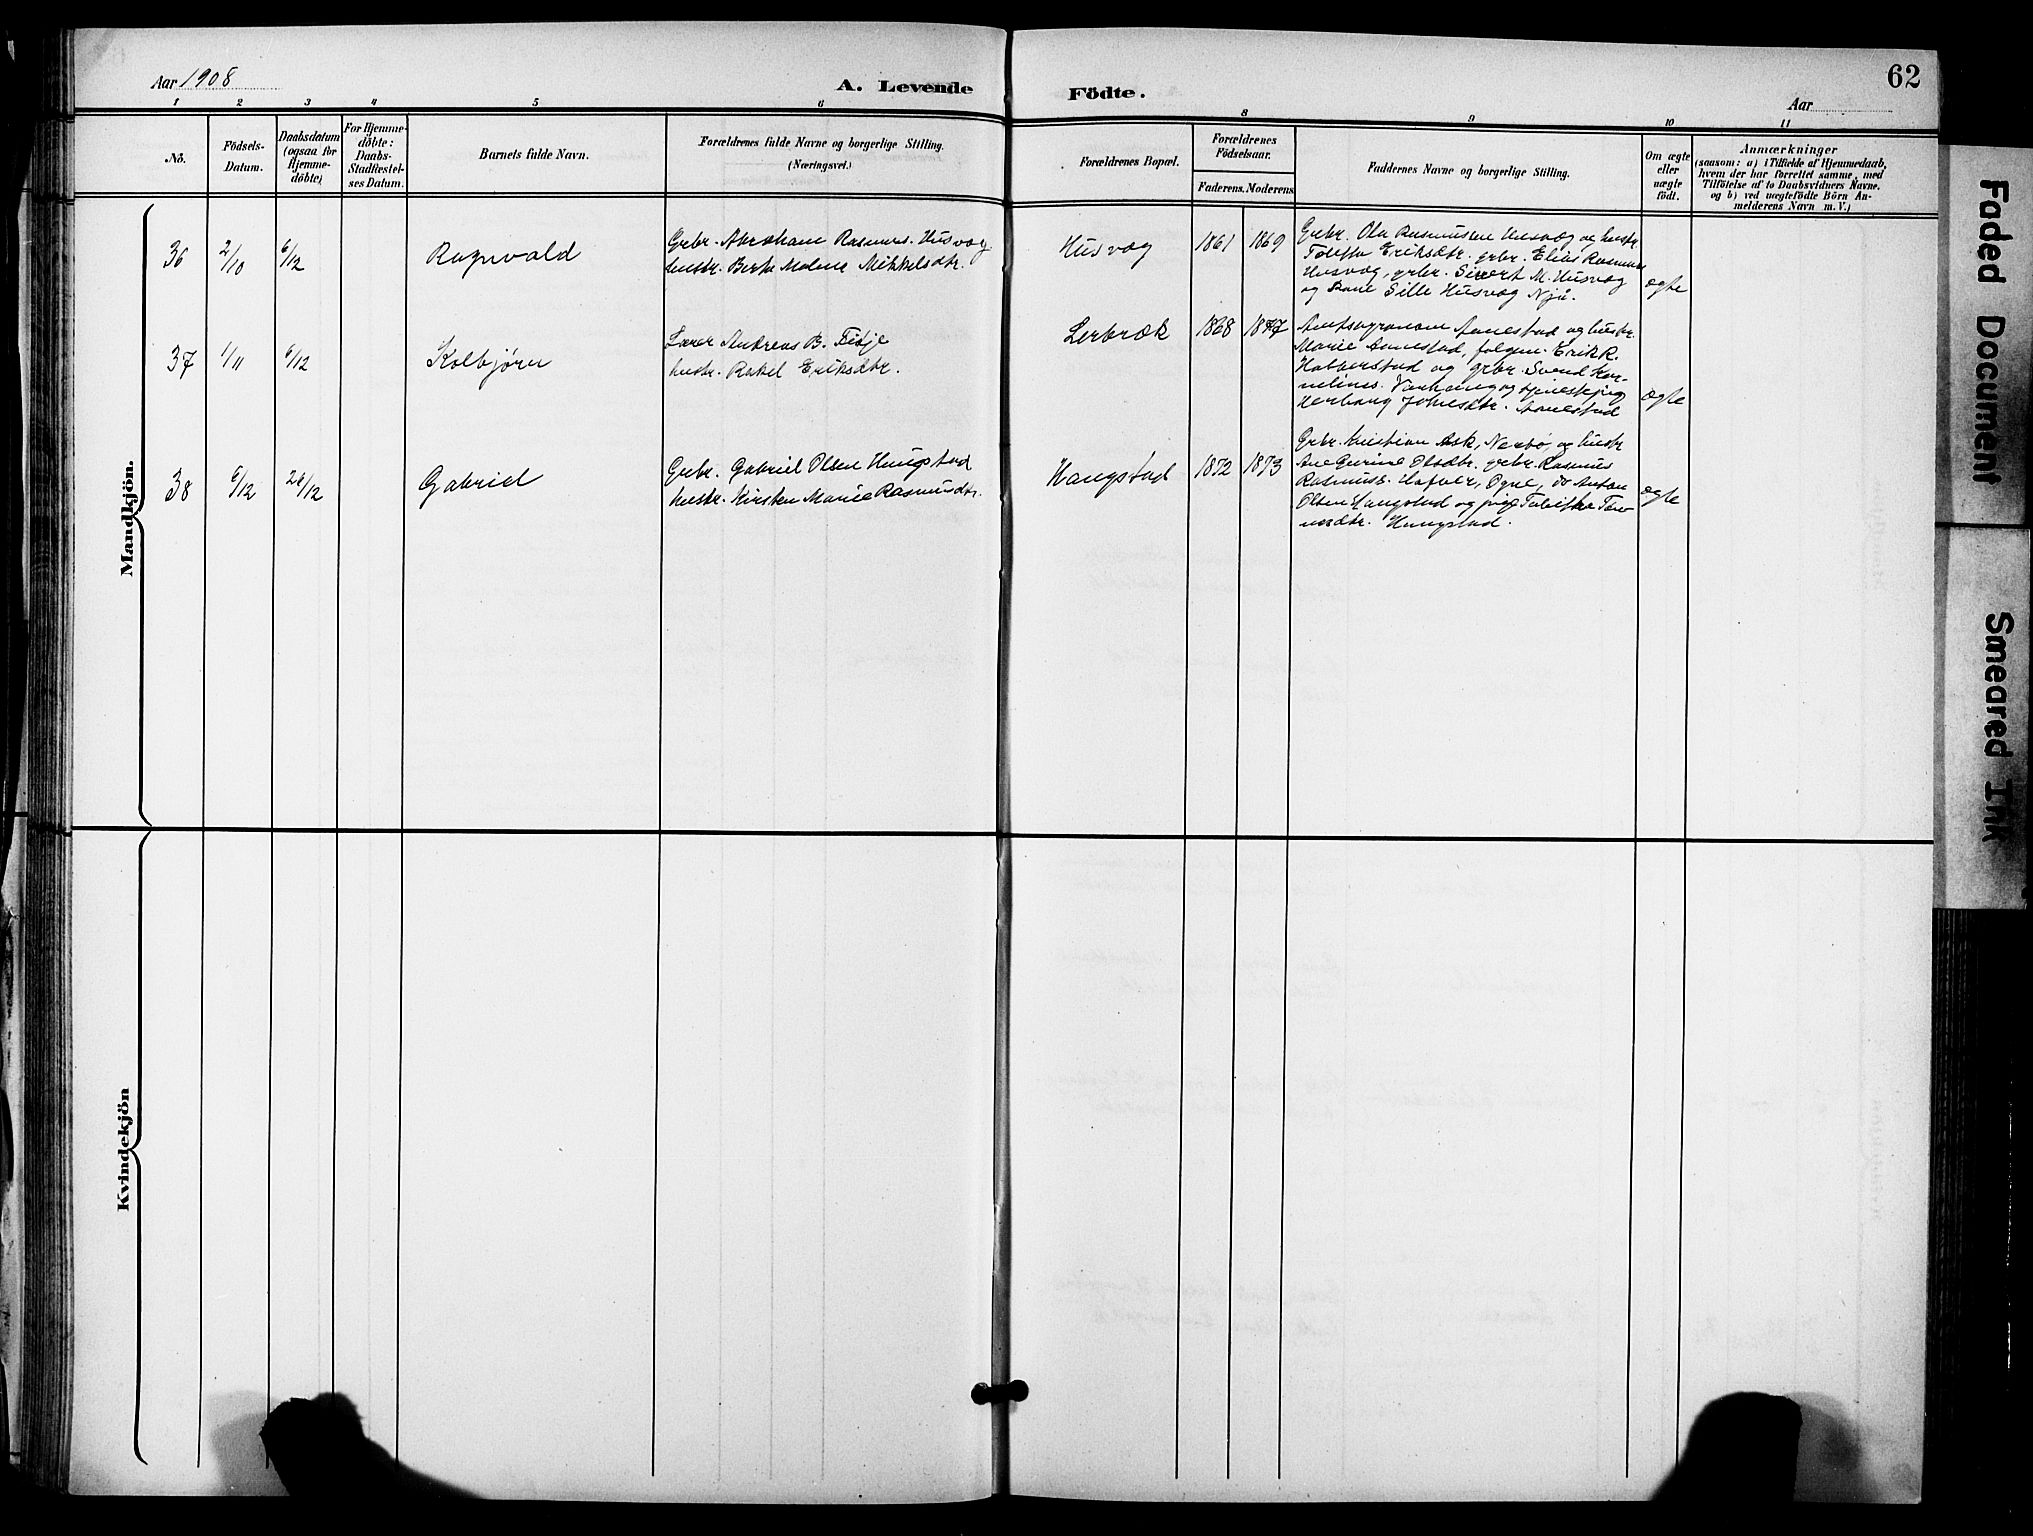 Aar 1908
A. Levende Födte.
Aar
62
1 2 3 4 5 6 8 9 10 11
No.
Födsels-
Datum.
Daabsdatum
(ogsaa for
Hjemme-
döbte)
For Hjemme-
döbte:
Daabs-
Stadfæstel-
ses Datum.
Barnets fulde Navn.
Forældrenes fulde Navne og borgerlige Stilling.
(Næringsvei.)
Forældrenes Bopæl.
Forældrenes
Födselsaar.
Faderens. Moderens.
Faddernes Navne og borgerlige Stilling.
Om ægte
eller
uægte
födt.
Anmærkninger
(saasom: a) i Tilfælde af Hjemmedaab,
hvem der har forrettet samme, med
Tilföielse af to Daabsvidners Navne.
og b) ved uægtefödte Börn An-
melderens Navn m. V.)
Mandkjön.
36 2/10 6/12 Ragnvald
Grbr. Abraham Rasmus. Husvæg
hustr. Berta Malene Mikkelsdtr.
Husvæg 1861 1869
Grbr. Ola Rasmussen Husvæg og hustr.
Eriksdtr. grbr. Elias Rasmus
Husvæg, grbr. Sivert M. Husvæg
og Sille Husvæg Njå.
ægte
37 1/11 6/12 Kolbjørn
Lærer Andreas B. Fidje
hustr. Rakel Eriksdtr.
Lerbræk 1868 1877
Amtsagronom Aanestad og hustr.
Marie Aanestad, Erik R.
Habberstad og grbr. Svend Kor-
nelius. Varhaug og tjenestepige
Johnsdtr. Aanestad
ægte
38 6/12 26/12 Gabriel
Grbr. Gabriel Olsen Haugstad
hustr. Kirsten Marie Rasmusdtr.
Haugstad 1872 1873
Grbr. Kristian Ask, Nærbø og hustr
Ane Gurine Olsdtr. grbr. Rasmus
Rasmuss. Ogne, do Anton
Olsen Haugstad og pige
Haugstad.
ægte
Kvindekjön
Faded Document
Smeared Ink